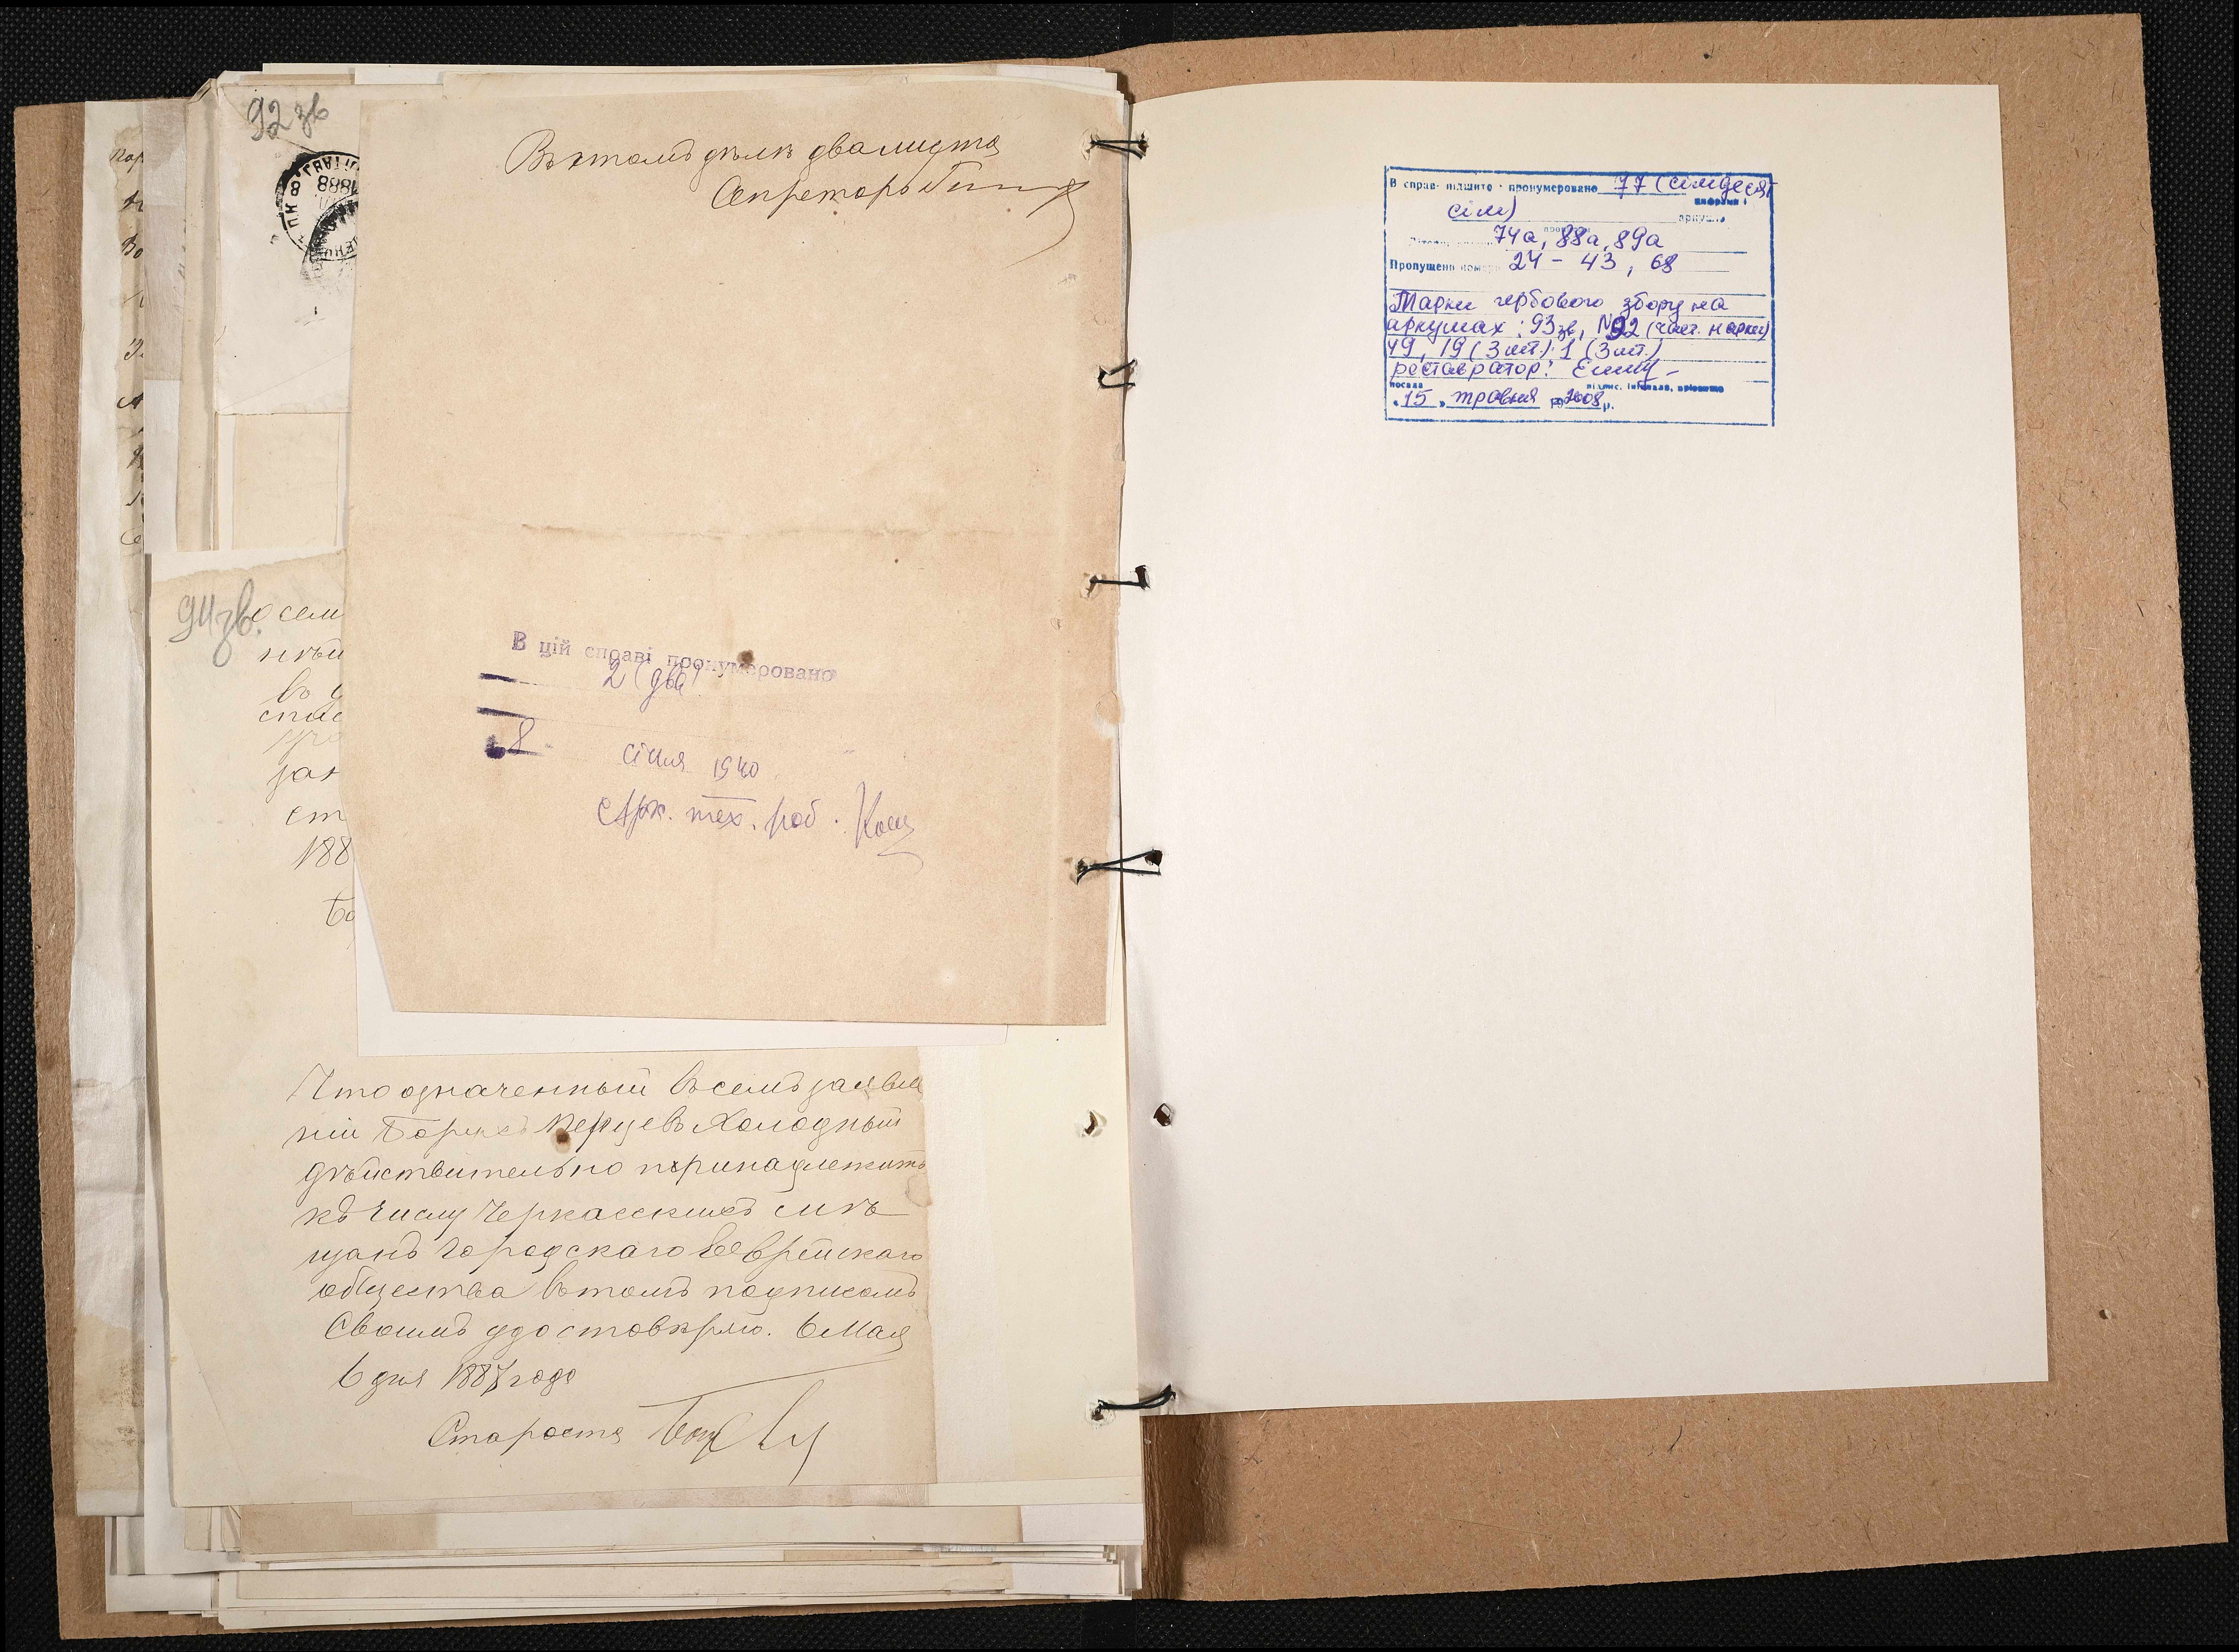 92 зв
1888
Въ этомъ дѣлѣ два листа
Секретарь
94 зв.
В цій справі пронумеровано
2 (два)
8 січня 1940
Арх. тех. роб.
188
Что означенный въ семъ заявле
ніи Борухъ Перцевъ Холодный
дѣйствительно принадлежитъ
къ числу Черкасскихъ мѣ
щанъ городскаго Еврейскаго
общества въ томъ подписомъ
Своимъ удостовѣряю. Мая
6 дня 1887 года
Староста
В справі підшито і пронумеровано 77 (сімдесят
цифрами і
сім) аркушів
74а, 88а, 89а
Пропущено номери 24 - 43, 68
Марки гербового збору на
аркушах: 93 зв, 92 (част. марки)
49, 19 (3 шт.) 1 (3 шт.)
реставратор:
посада підпис, ініціали, прізвище
"15" травня 2008 р.